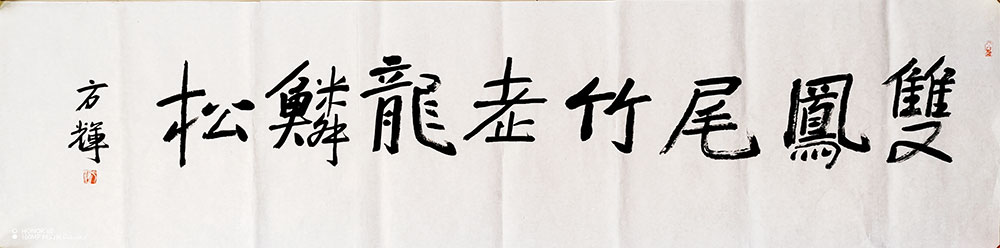 雙鳳尾竹老龍鱗松
方輝